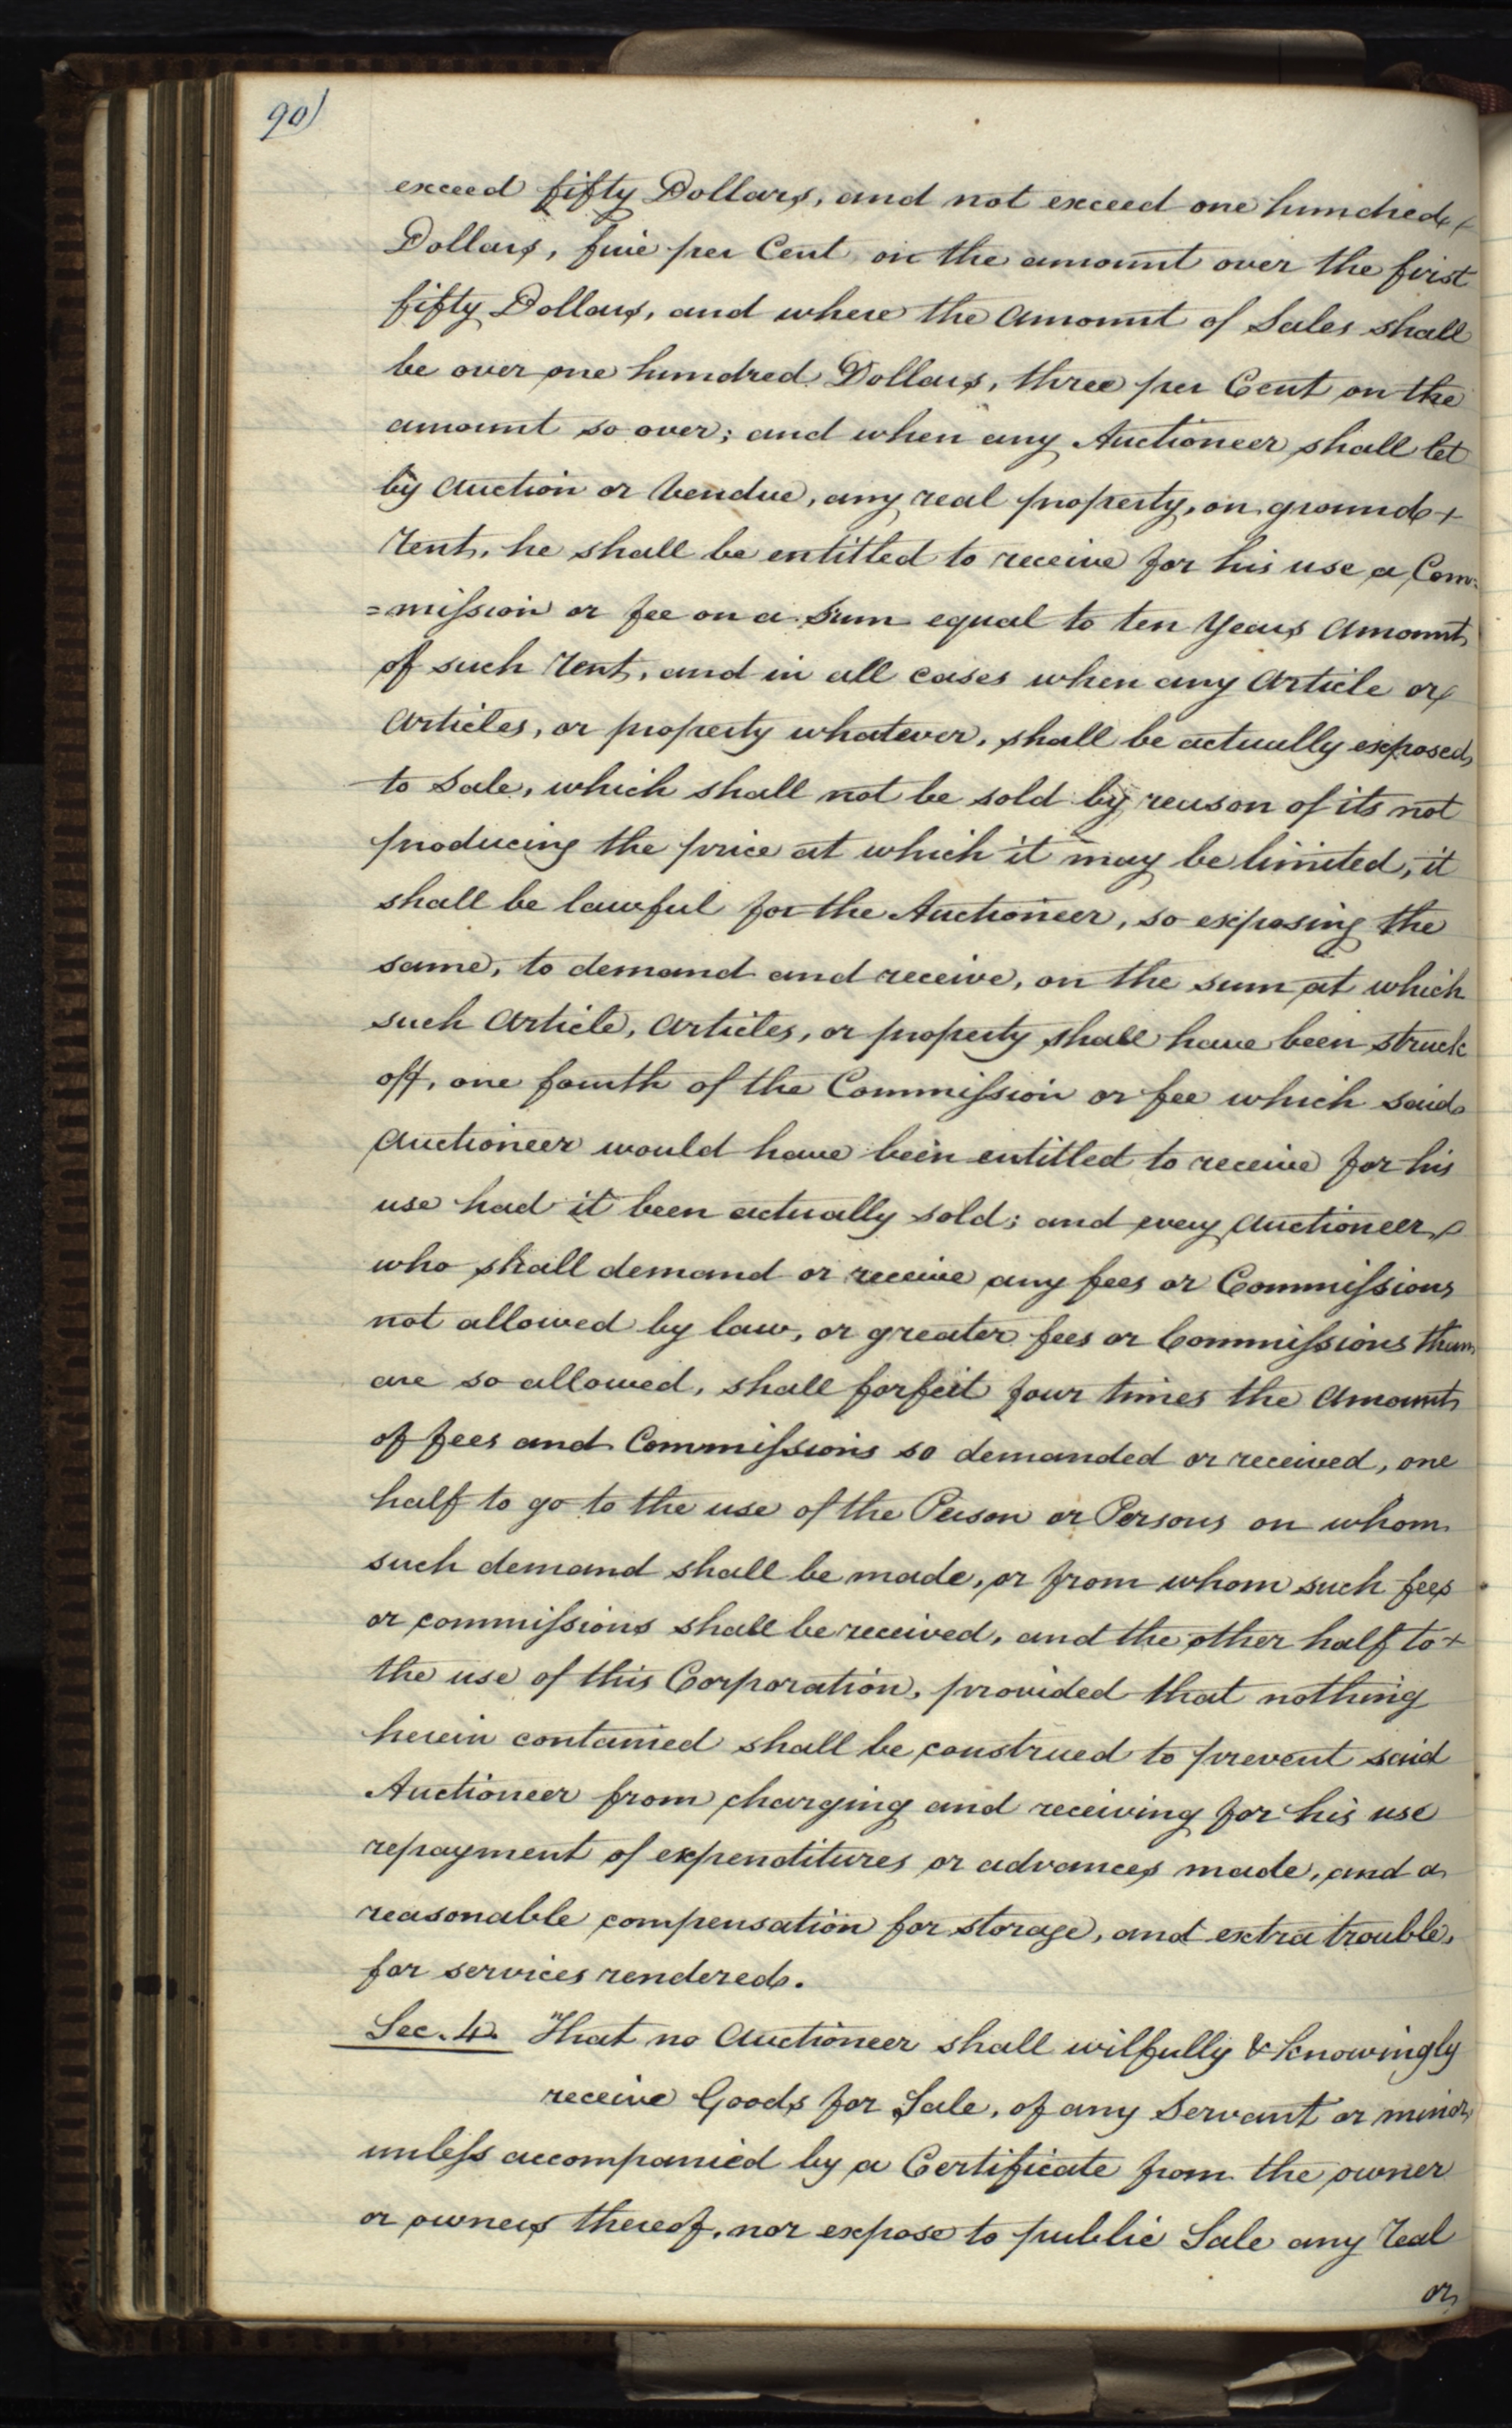 90)
exceed fifty Dollars, and not exceed one hundred
Dollars, five per Cent on the amount over the first
fifty Dollars, and where the amount of Sales shall
be over one hundred Dollars, three per Cent on the
amount so over; and when any Auctioneer shall let
by Auction or Vendue, any real property, on ground
rent, he shall be entitled to receive for his use a Com-
=mission or fee on a Sum equal to ten Years Amount
of such rent, and in all cases when any Article or
Articles, or property whatever, shall be actually exposed
to Sale, which shall not be sold by reason of its not
producing the price at which it may be limited, it
shall be lawful for the Auctioneer, so exposing the
same, to demand and receive, on the sum at which
such Article, Articles, or property shall have been struck
off, one fourth of the Commission or fee which said
Auctioneer would have been entitled to receive for his
use had it been actually sold; and every Auctioneer
who shall demand or receive any fees or Commissions
not allowed by law, or greater fees or Commissions than
are so allowed, shall forfeit four times the Amount
of fees and Commissions so demanded or received, one
half to go to the use of the Person or Persons on whom
such demand shall be made, or from whom such fees
or commissions shall be received, and the other half to
the use of this Corporation, provided that nothing
herein contained shall be construed to prevent said
Auctioneer from charging and receiving for his use
repayment of expenditures or advances made, and a
reasonable compensation for storage, and extra trouble,
for services rendered.
Sec. 4. That no Auctioneer shall wilfully & knowingly
receive Goods for Sale, of any Servant or minor
unless accompanied by a Certificate from the owner
or owners thereof, nor expose to public Sale any real
or